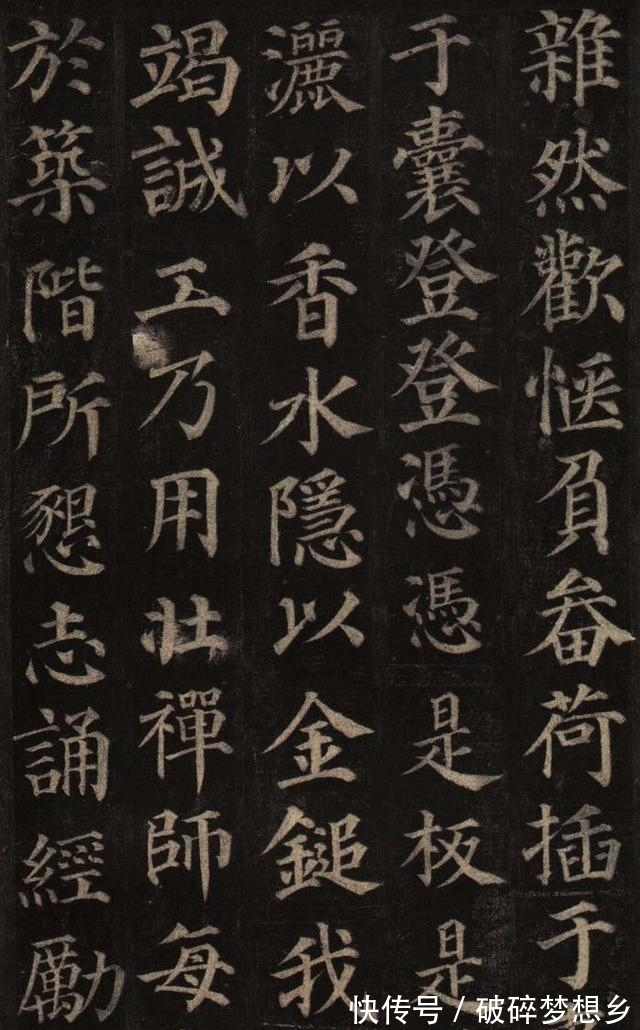 雜然歡惬負畚荷插于
于囊登登憑憑是板是
灑以香水隱以金鎚我
竭誠工乃用壯禪師每
於築階所懇志誦經勵
快传号／破碎梦想乡